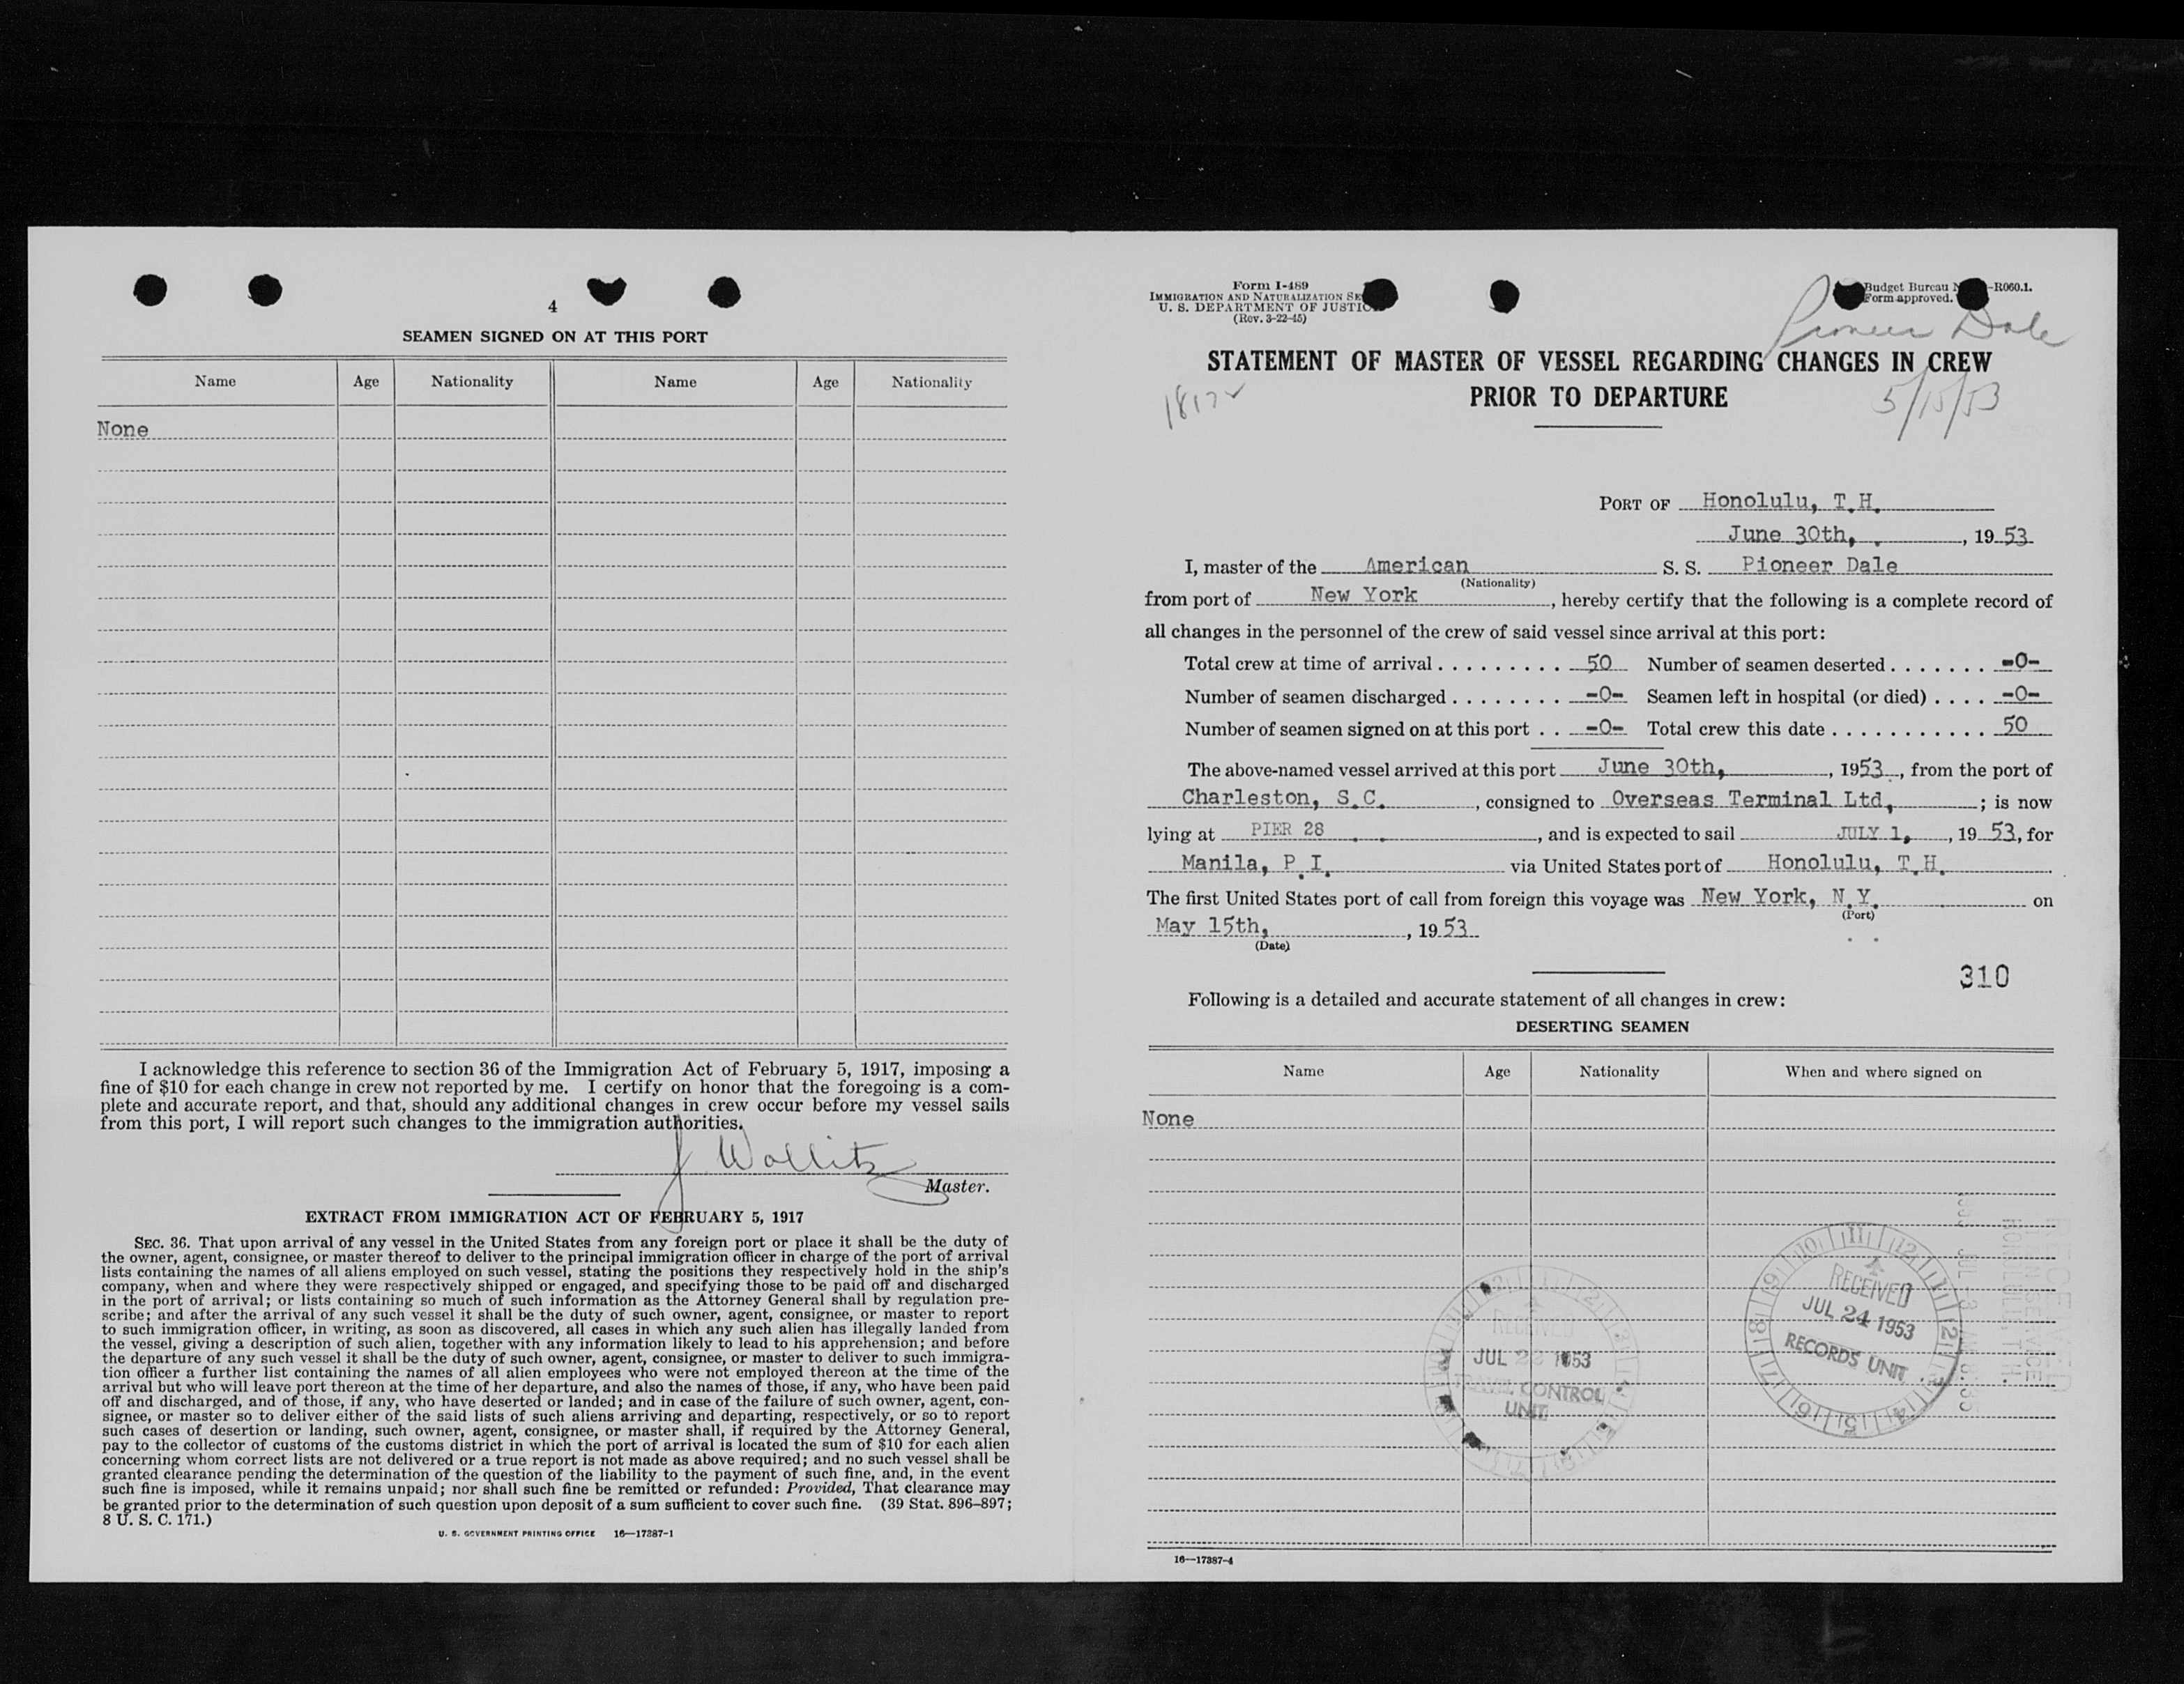 4
SEAMEN SIGNED ON AT THIS PORT
Name Age Nationality Name Age Nationality
None
I acknowledge this reference to section 36 of the Immigration Act of February 5, 1917, imposing a
fine of $10 for each change in crew not reported by me. I certify on honor that the foregoing is a com-
plete and accurate report, and that, should any additional changes in crew occur before my vessel sails
from this port, I will report such changes to the immigration authorities.
J Wollitz
Master.
EXTRACT FROM IMMIGRATION ACT OF FEBRUARY 5, 1917
SEC. 36. That upon arrival of any vessel in the United States from any foreign port or place it shall be the duty of
the owner, agent, consignee, or master thereof to deliver to the principal immigration officer in charge of the port of arrival
lists containing the names of all aliens employed on such vessel, stating the positions they respectively hold in the ship's
company, when and where they were respectively shipped or engaged, and specifying those to be paid off and discharged
in the port of arrival; or lists containing so much of such information as the Attorney General shall by regulation pre-
scribe; and after the arrival of any such vessel it shall be the duty of such owner, agent, consignee, or master to report
to such immigration officer, in writing, as soon as discovered, all cases in which any such alien has illegally landed from
the vessel, giving a description of such alien, together with any information likely to lead to his apprehension; and before
the departure of any such vessel it shall be the duty of such owner, agent, consignee, or master to deliver to such immigra-
tion officer a further list containing the names of all alien employees who were not employed thereon at the time of the
arrival but who will leave port thereon at the time of her departure, and also the names of those, if any, who have been paid
off and discharged, and of those, if any, who have deserted or landed; and in case of the failure of such owner, agent, con-
signee, or master so to deliver either of the said lists of such aliens arriving and departing, respectively, or so to report
such cases of desertion or landing, such owner, agent, consignee, or master shall, if required by the Attorney General,
pay to the collector of customs of the customs district in which the port of arrival is located the sum of $10 for each alien
concerning whom correct lists are not delivered or a true report is not made as above required; and no such vessel shall be
granted clearance pending the determination of the question of the liability to the payment of such fine, and, in the event
such fine is imposed, while it remains unpaid; nor shall such fine be remitted or refunded: Provided, That clearance may
be granted prior to the determination of such question upon deposit of a sum sufficient to cover such fine. (39 Stat. 896-897;
8 U. S. C. 171.)
U. S. GOVERNMENT PRINTING OFFICE 16—17387-1
Form I-489
IMMIGRATION AND NATURALIZATION SE
U. S. DEPARTMENT OF JUSTIC
(Rev. 3-22-45)
Budget Bureau N -R060.1.
Form approved.
Pioneer Dale
STATEMENT OF MASTER OF VESSEL REGARDING CHANGES IN CREW
PRIOR TO DEPARTURE
5/15/53
PORT OF Honolulu, T.H.
June 30th, , 19 53
I, master of the American S. S. Pioneer Dale
(Nationality)
from port of New York , hereby certify that the following is a complete record of
all changes in the personnel of the crew of said vessel since arrival at this port:
Total crew at time of arrival . . . . . . . . . 50 Number of seamen deserted . . . . . . . -0-
Number of seamen discharged . . . . . . . . -0- Seamen left in hospital (or died) . . . . -0-
Number of seamen signed on at this port . . -0- Total crew this date . . . . . . . . . . . 50
The above-named vessel arrived at this port June 30th, , 1953 , from the port of
Charleston, S.C. , consigned to Overseas Terminal Ltd, ; is now
lying at PIER 28 , and is expected to sail JULY 1, , 19 53, for
Manila, P.I. via United States port of Honolulu, T.H.
The first United States port of call from foreign this voyage was New York, N.Y. on
(Port)
May 15th, , 19 53
(Date)
310
Following is a detailed and accurate statement of all changes in crew:
DESERTING SEAMEN
Name Age Nationality When and where signed on
None
RECEIVED
JUL 24 1953
RECORDS UNIT
RECEIVED
JUL 1953
CONTROL
UNIT
16—17387-4